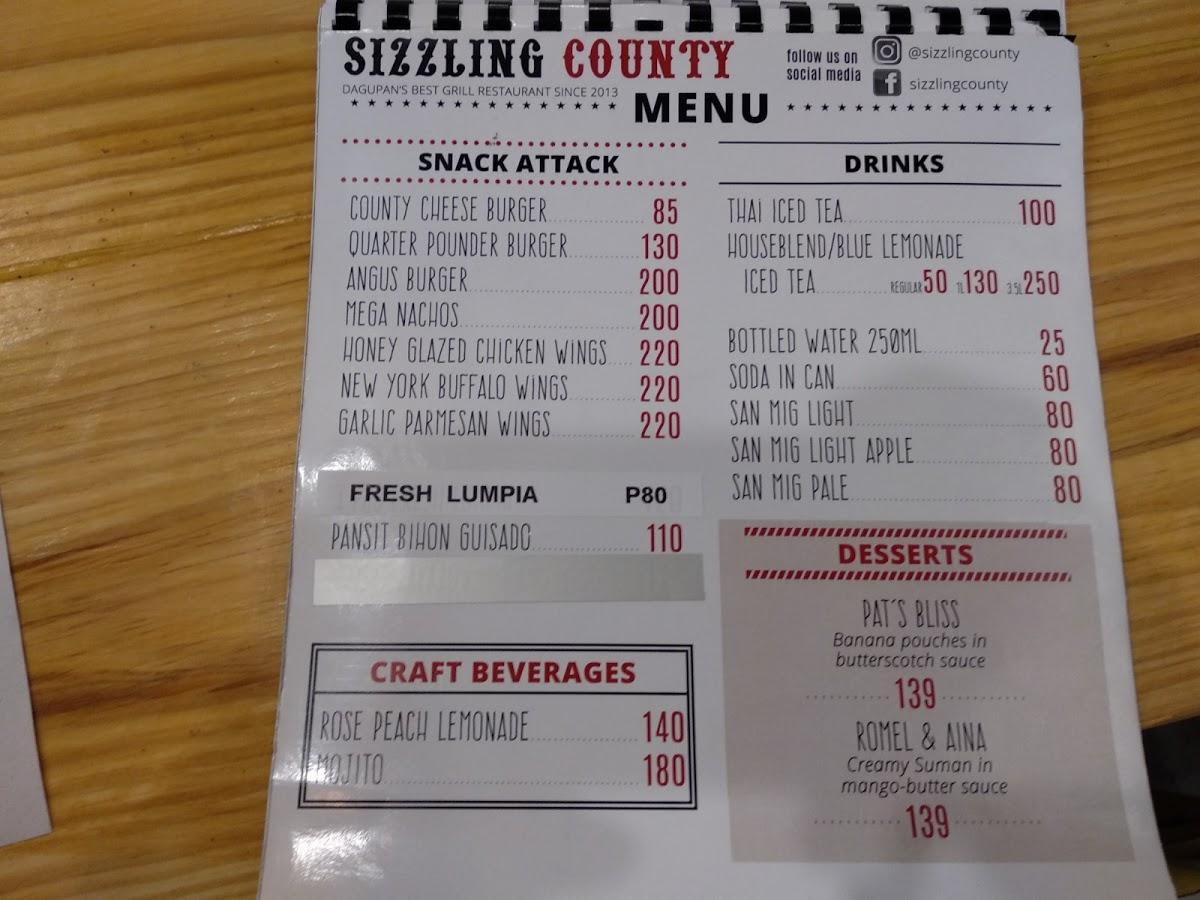 SIZZLING COUNTY
DAGUPAN'S BEST GRILL RESTAURANT SINCE 2013
follow us on
social media
@sizzlingcounty
sizzlingcounty
MENU
SNACK ATTACK
COUNTY CHEESE BURGER 85
QUARTER POUNDER BURGER 130
ANGUS BURGER 200
MEGA NACHOS 200
HONEY GLAZED CHICKEN WINGS 220
NEW YORK BUFFALO WINGS 220
GARLIC PARMESAN WINGS 220
FRESH LUMPIA P80
PANSIT BIHON GUISADO 110
CRAFT BEVERAGES
ROSE PEACH LEMONADE 140
MOJITO 180
DRINKS
THAI ICED TEA 100
HOUSEBLEND/BLUE LEMONADE
ICED TEA REGULAR 50 1L 130 3.5L 250
BOTTLED WATER 250ML 25
SODA IN CAN 60
SAN MIG LIGHT 80
SAN MIG LIGHT APPLE 80
SAN MIG PALE 80
DESSERTS
PAT'S BLISS
Banana pouches in
butterscotch sauce
139
ROMEL & AINA
Creamy Suman in
mango-butter sauce
139